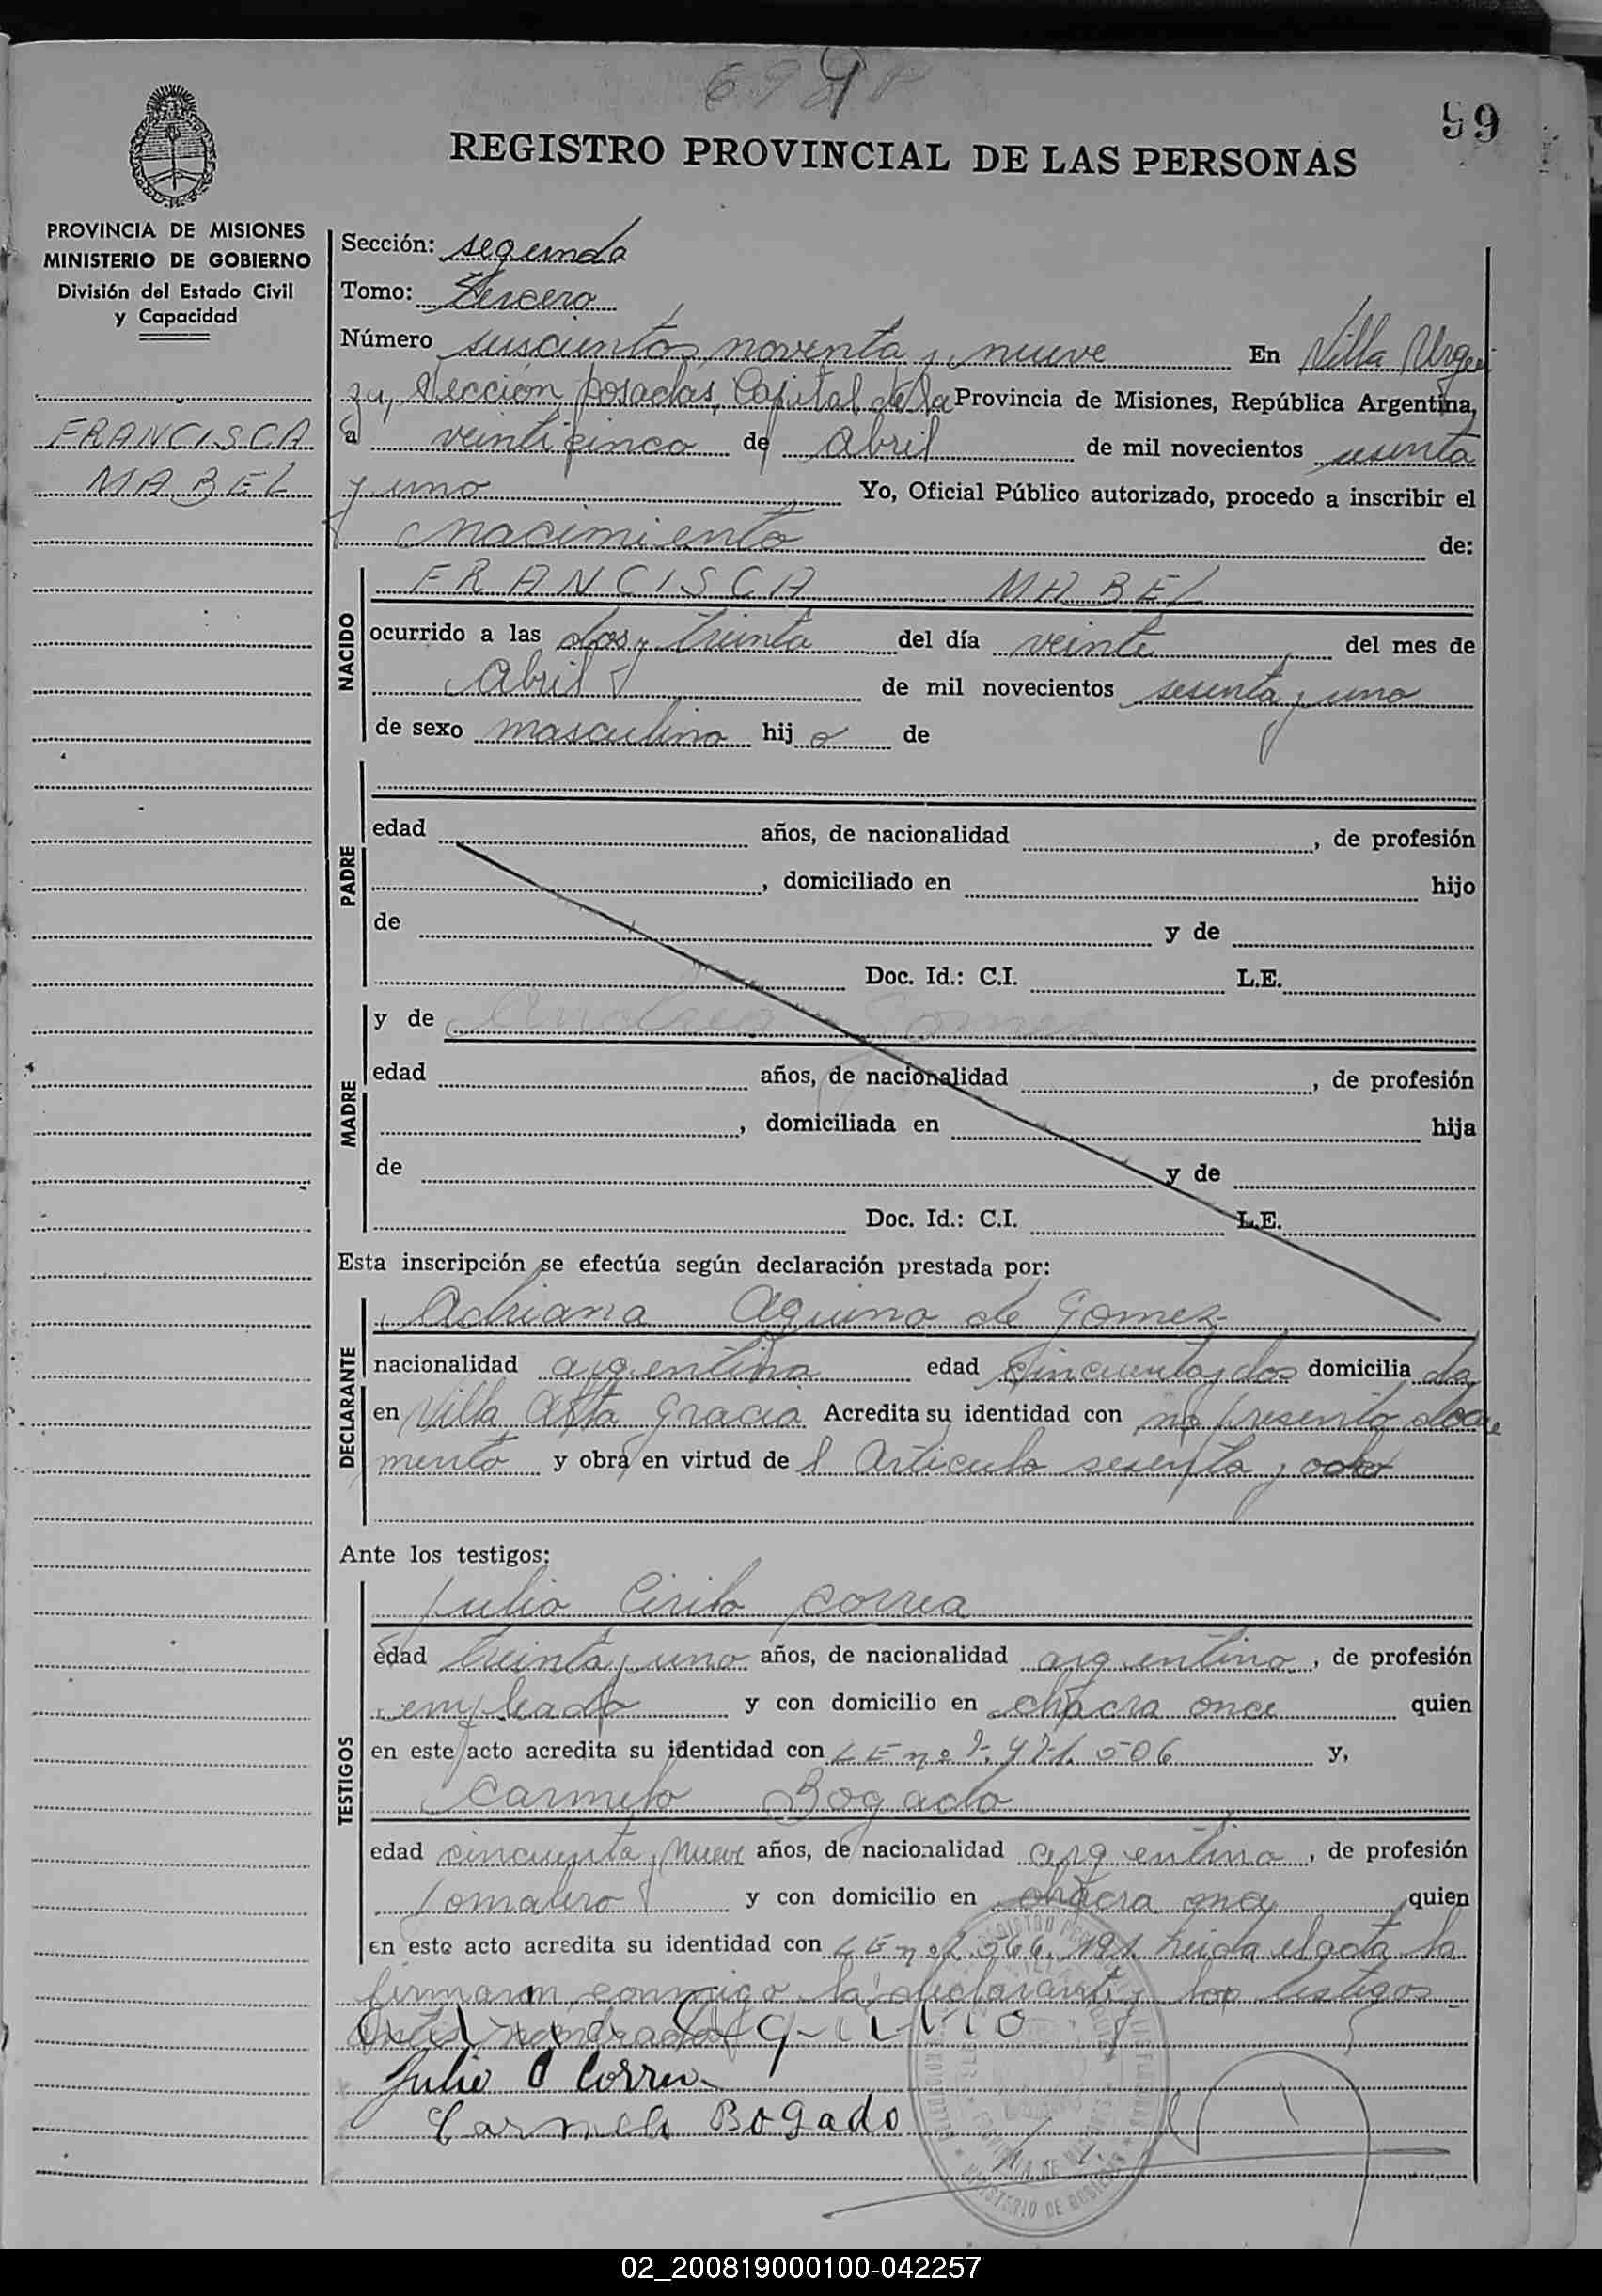 99
REGISTRO PROVINCIAL DE LAS PERSONAS
PROVINCIA DE MISIONES
MINISTERIO DE GOBIERNO
División del Estado Civil
y Capacidad
FRANCISCA
MABEL
Sección: segunda
Tomo: Tercero
Número suscientos noventa y nueve En Villa Urqui
zu, Sección posadas, Capital de la Provincia de Misiones, República Argentina,
a veinticinco de Abril de mil novecientos sesenta
y uno Yo, Oficial Público autorizado, procedo a inscribir el
nacimiento de:
NACIDO
FRANCISCA MABEL
ocurrido a las dos y treinta del día veinte del mes de
Abril de mil novecientos sesenta y uno
de sexo masculino hijo de
PADRE
edad años, de nacionalidad , de profesión
, domiciliado en hijo
de y de
Doc. Id.: C.I. L.E.
MADRE
y de Andrea Gomez
edad años, de nacionalidad , de profesión
, domiciliada en hija
de y de
Doc. Id.: C.I. L.E.
Esta inscripción se efectúa según declaración prestada por:
DECLARANTE
Adriana Aquino de Gomez
nacionalidad argentina edad cincuenta y dos domicilia da
en Villa Alta Gracia Acredita su identidad con no presento docu
mento y obra en virtud de l Articulo sesenta y ocho
Ante los testigos:
TESTIGOS
Julio Cirilo Correa
edad treinta y uno años, de nacionalidad argentino, de profesión
empleado y con domicilio en chacra once quien
en este acto acredita su identidad con LE nº 506 y,
Carmelo Bogado
edad cincuenta y nueve años, de nacionalidad argentino, de profesión
jornalero y con domicilio en chacra once quien
en este acto acredita su identidad con LE nº leida el acta la
firmaron conmigo la declarante y los testigos
antes nombrados Aquino
Julio C Correa
Carmelo Bogado
MINISTERIO DE GOBIERNO
02_200819000100-042257